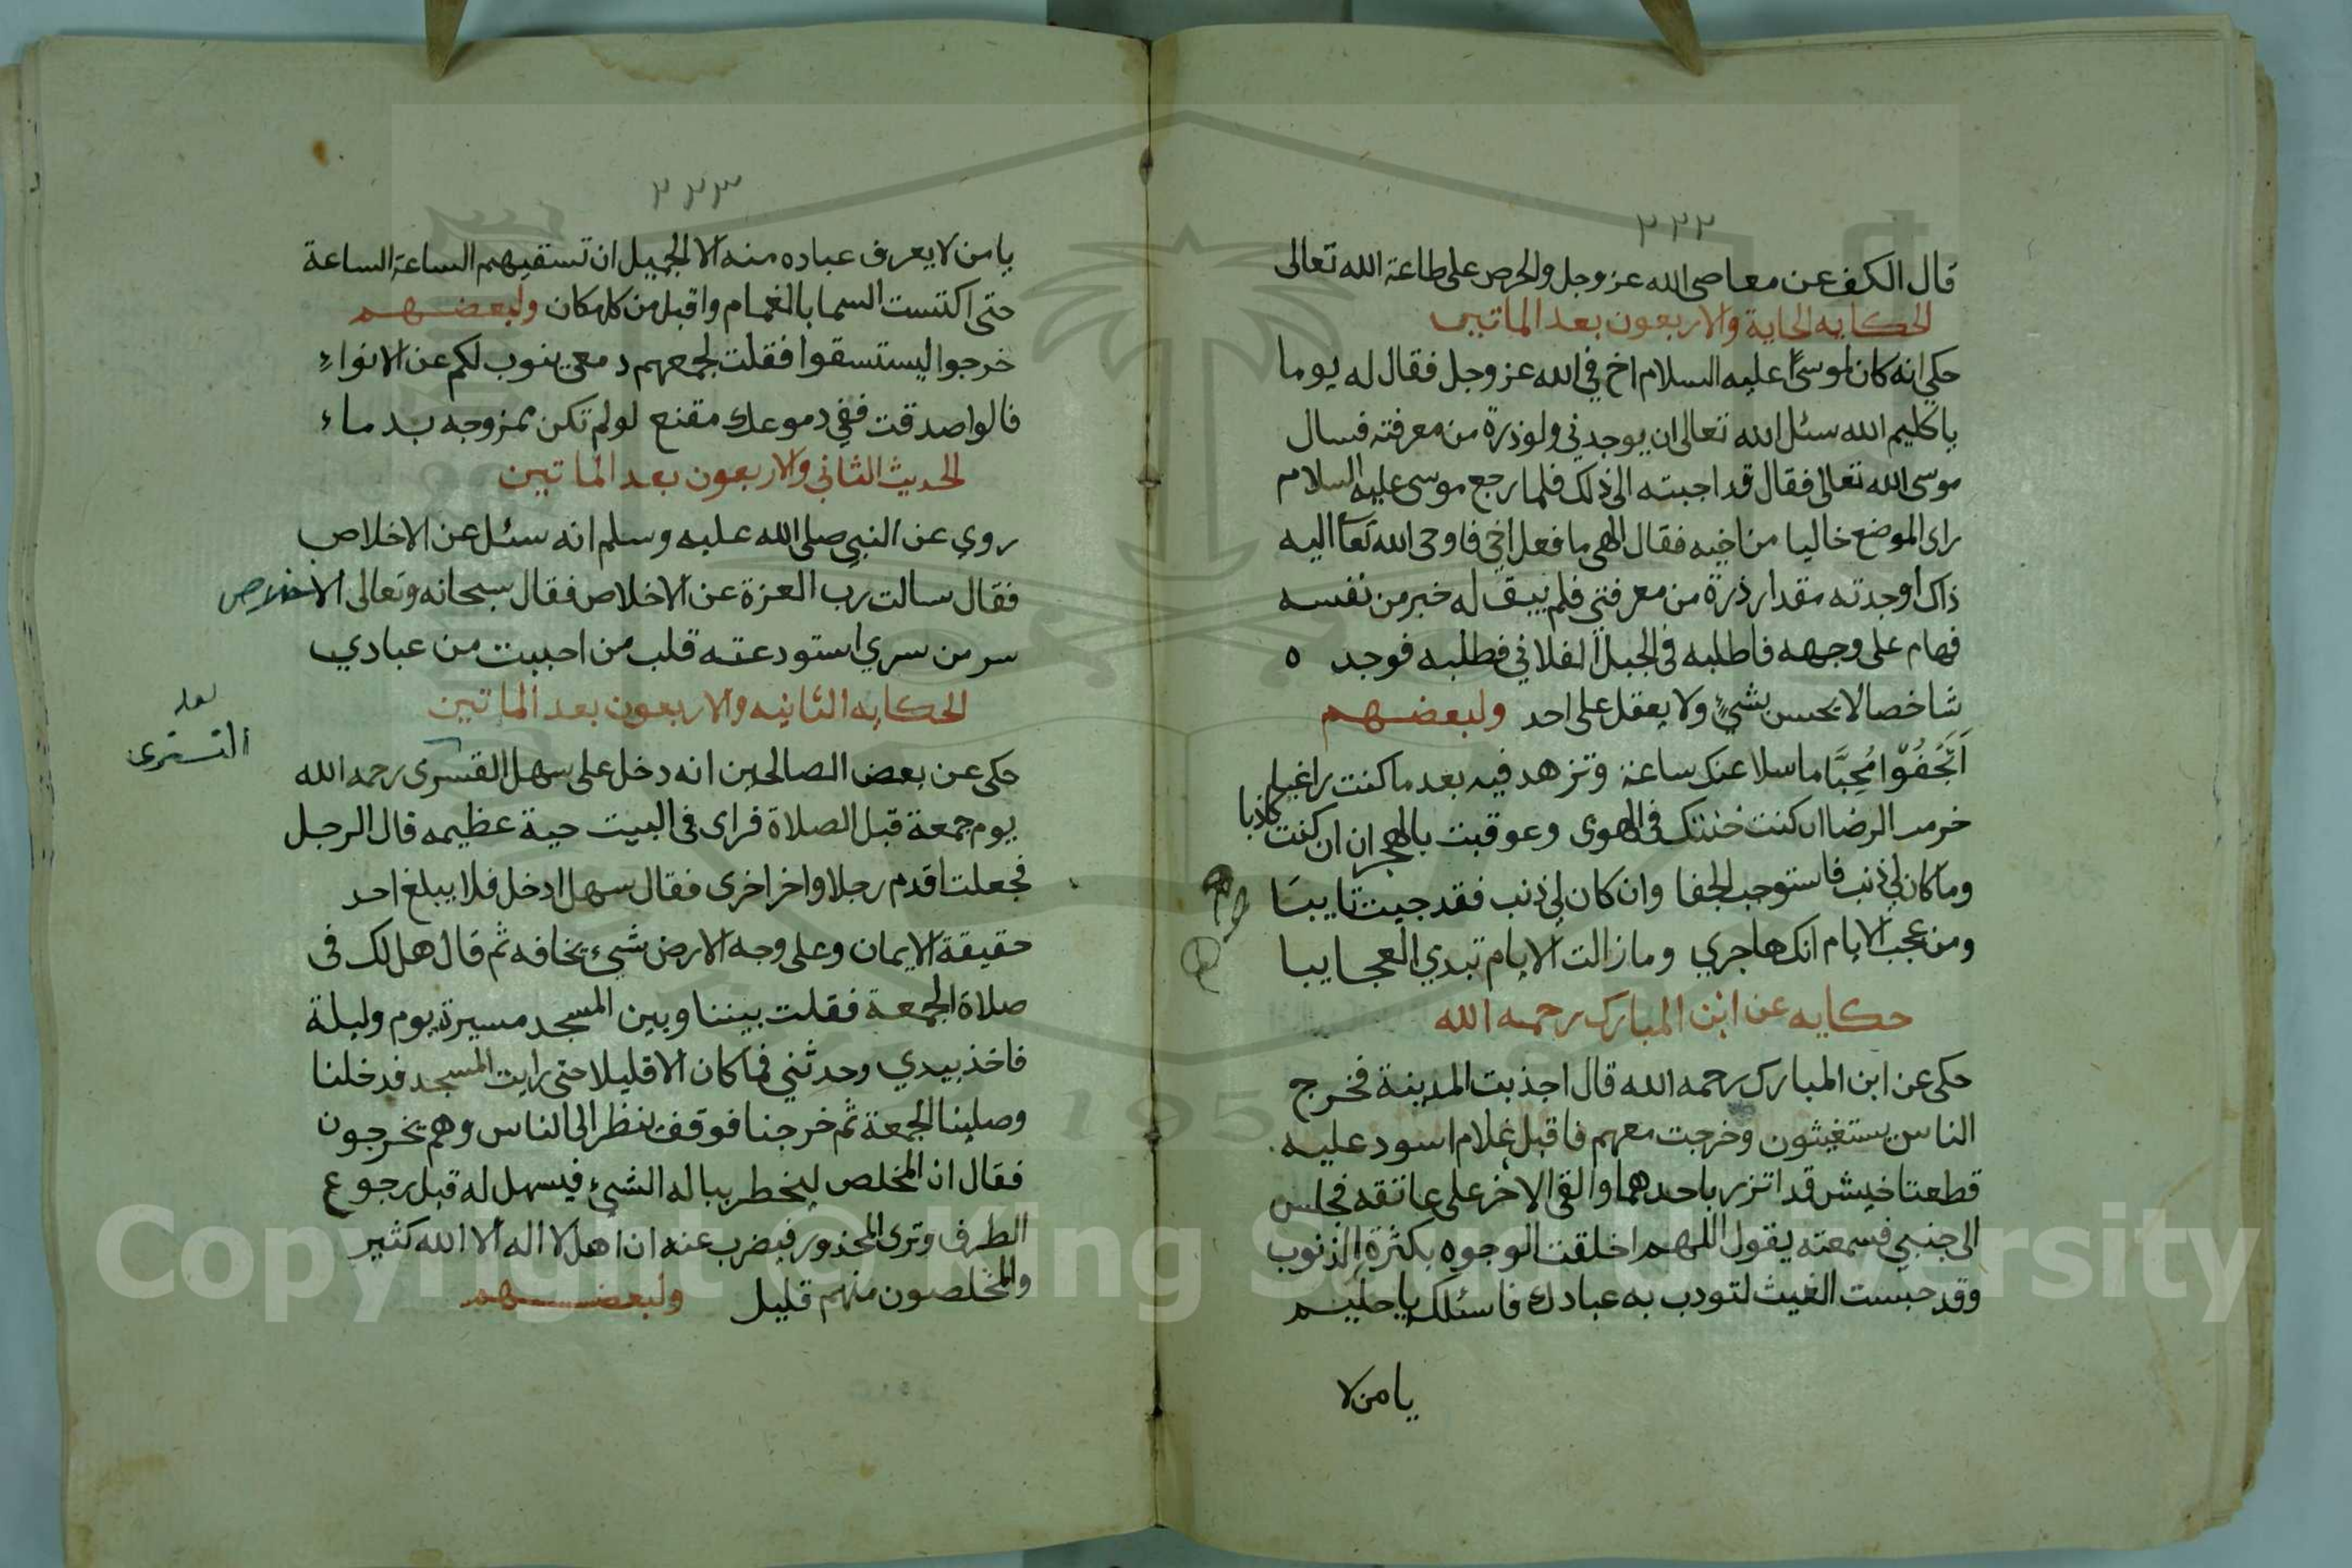 ٢٢٢
قال الكف عن معاصي الله عز وجل والحرص على طاعة الله تعالى
الحكايه الحاية والاربعون بعد الماتين
حكي انه كان لموسى عليه السلام اخ في الله عز وجل فقال له يوما
يا كليم الله سئل الله تعالى ان يوجدني ولو ذرة من معرفته فسال
موسى الله تعالى فقال قد اجبته الى ذلك فلما رجع موسى عليه السلام
راى الموضع خاليا من اخيه فقال الهي ما فعل اخي فاوحى الله تعا اليه
ذاك اوجدته مقدار ذرة من معرفتي فلم يبق له خبر من نفسه
فهام على وجهه فاطلبه في الجبل الفلاني فطلبه فوجد ه
شاخصا لا يحسن بشيء ولا يعقل على احد ولبعضهم
اَتَجْفُوْا مُحِبًّا ما سلا عنك ساعة وتزهد فيه بعد ما كنت راغبا
حرمت الرضا ان كنت خنتك في الهوى وعوقبت بالهجران ان كنت كاذبا
وما كان لي ذنب فاستوجب الجفا وان كان لي ذنب فقد جيت تايبا
ومن عجب الايام انك هاجري وما زالت الايام تبدي العجايبا
حكايه عن ابن المبارك رحمه الله
حكى عن ابن المبارك رحمه الله قال اجذبت المدينة فخرج
الناس يستغيثون وخرجت معهم فاقبل غلام اسود عليه
قطعتا خيش قد اتزر باحدهما والقى الاخر على عاتقه فجلس
الى جنبي فسمعته يقول اللهم اخلقت الوجوه بكثرة الذنوب
وقد حبست الغيث لتودب به عبادك فاسئلك يا حليم
يا من لا
٢٢٣
يا من لا يعرف عباده منه الا الجميل ان تسقيهم الساعة الساعة
حتى اكتست السما بالغمام واقبل من كل مكان ولبعضهم
خرجوا ليستسقوا فقلت لجمعهم دمعي ينوب لكم عن الانواء
قالوا صدقت ففي دموعك مقنع لو لم تكن ممزوجه بدماء
الحديث الثاني والاربعون بعد الماتين
روي عن النبي صلى الله عليه وسلم انه سئل عن الاخلاص
فقال سالت رب العزة عن الاخلاص فقال سبحانه وتعالى الاخلاص
سر من سري استودعته قلب من احببت من عبادي
الحكايه الثانيه والاربعون بعد الماتين
لعله
التستري
حكى عن بعض الصالحين انه دخل على سهل القسرى رحمه الله
يوم جمعة قبل الصلاة فراى في البيت حية عظيمه قال الرجل
فجعلت اقدم رجلا واخر اخرى فقال سهل ادخل فلا يبلغ احد
حقيقة الايمان وعلى وجه الارض شيء يخافه ثم قال هل لك في
صلاة الجمعة فقلت بيننا وبين المسجد مسيرة يوم وليلة
فاخذ بيدي وحدثني فما كان الا قليلا حتى رايت المسجد فدخلنا
وصلينا الجمعة ثم خرجنا فوقف ينظر الى الناس وهم يخرجون
فقال ان المخلص ليخطر بباله الشيء فيسهل له قبل رجوع
الطرف وترى المحذور فيضرب عنه ان اهل لا اله الا الله كثير
والمخلصون منهم قليل ولبعضهم
Copyright © King Saud University